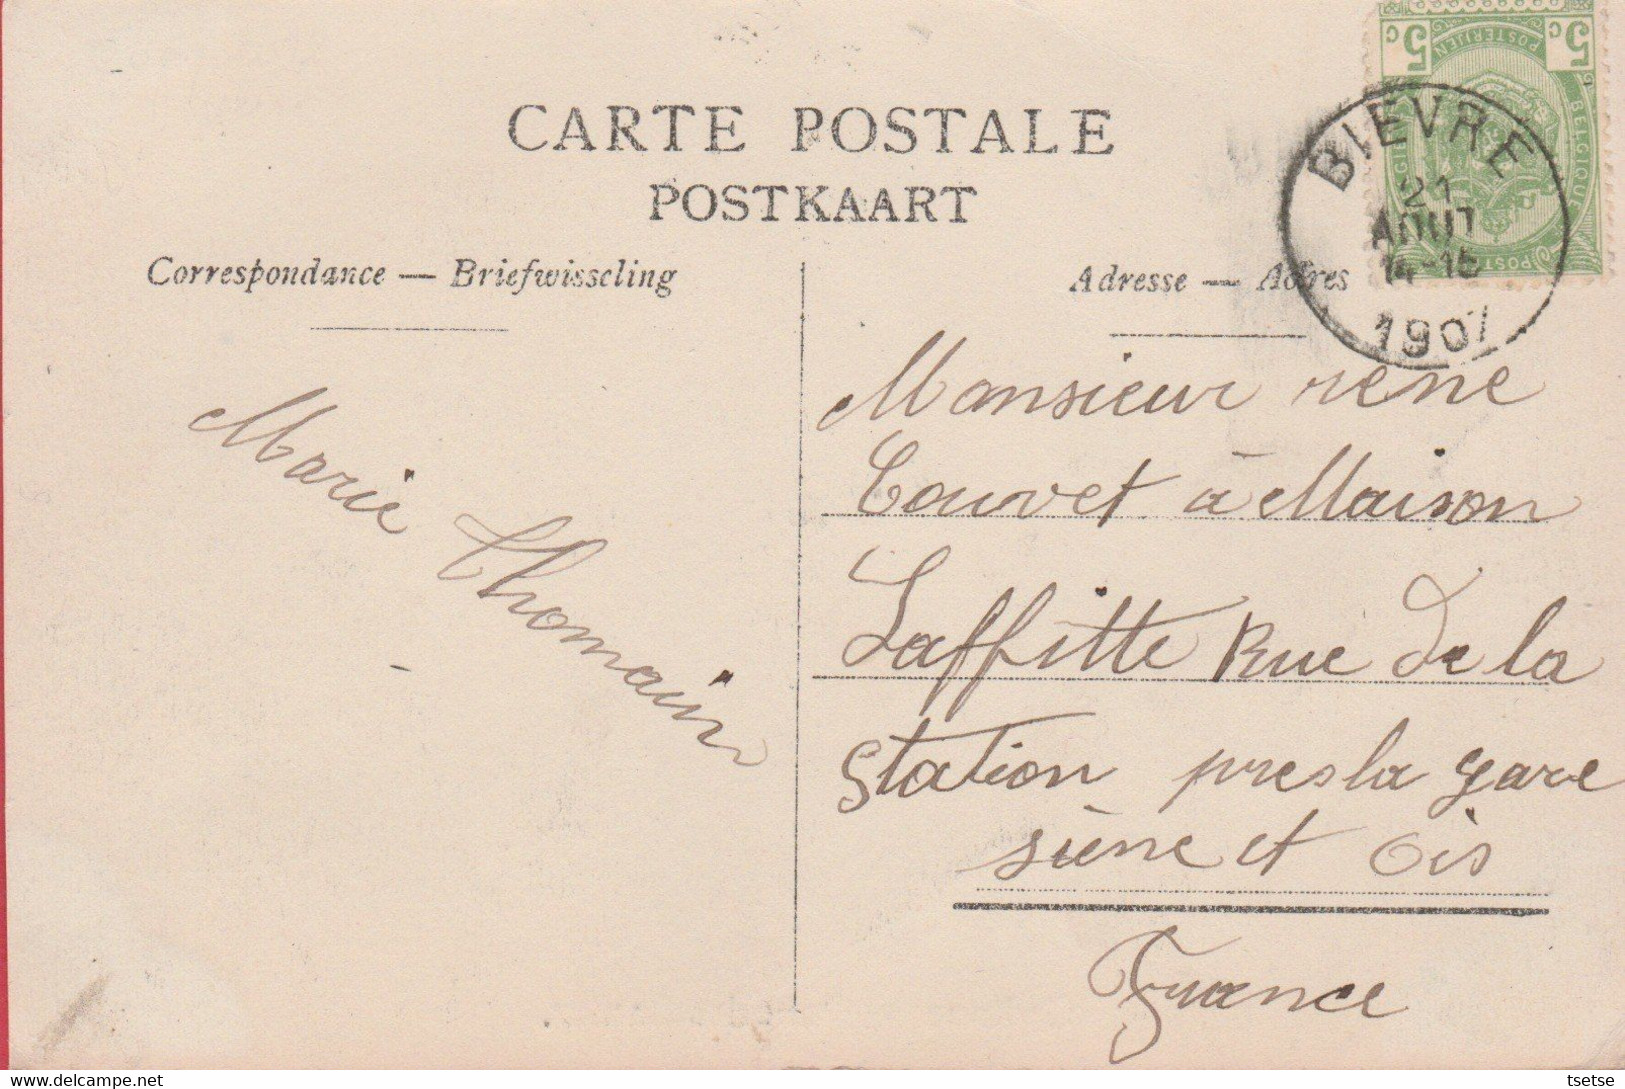 CARTE POSTALE
POSTKAART
Correspondance — Briefwisseling
Adresse — Adres
5 c 5 c
POSTERIJEN
BELGIQUE
BIEVRE
21
AOUT
14-15
1907
Marie Thomain
Monsieur rene
Couvet à Maison
Laffitte Rue de la
Station pres la gare
siène et Ois
France
tsetse